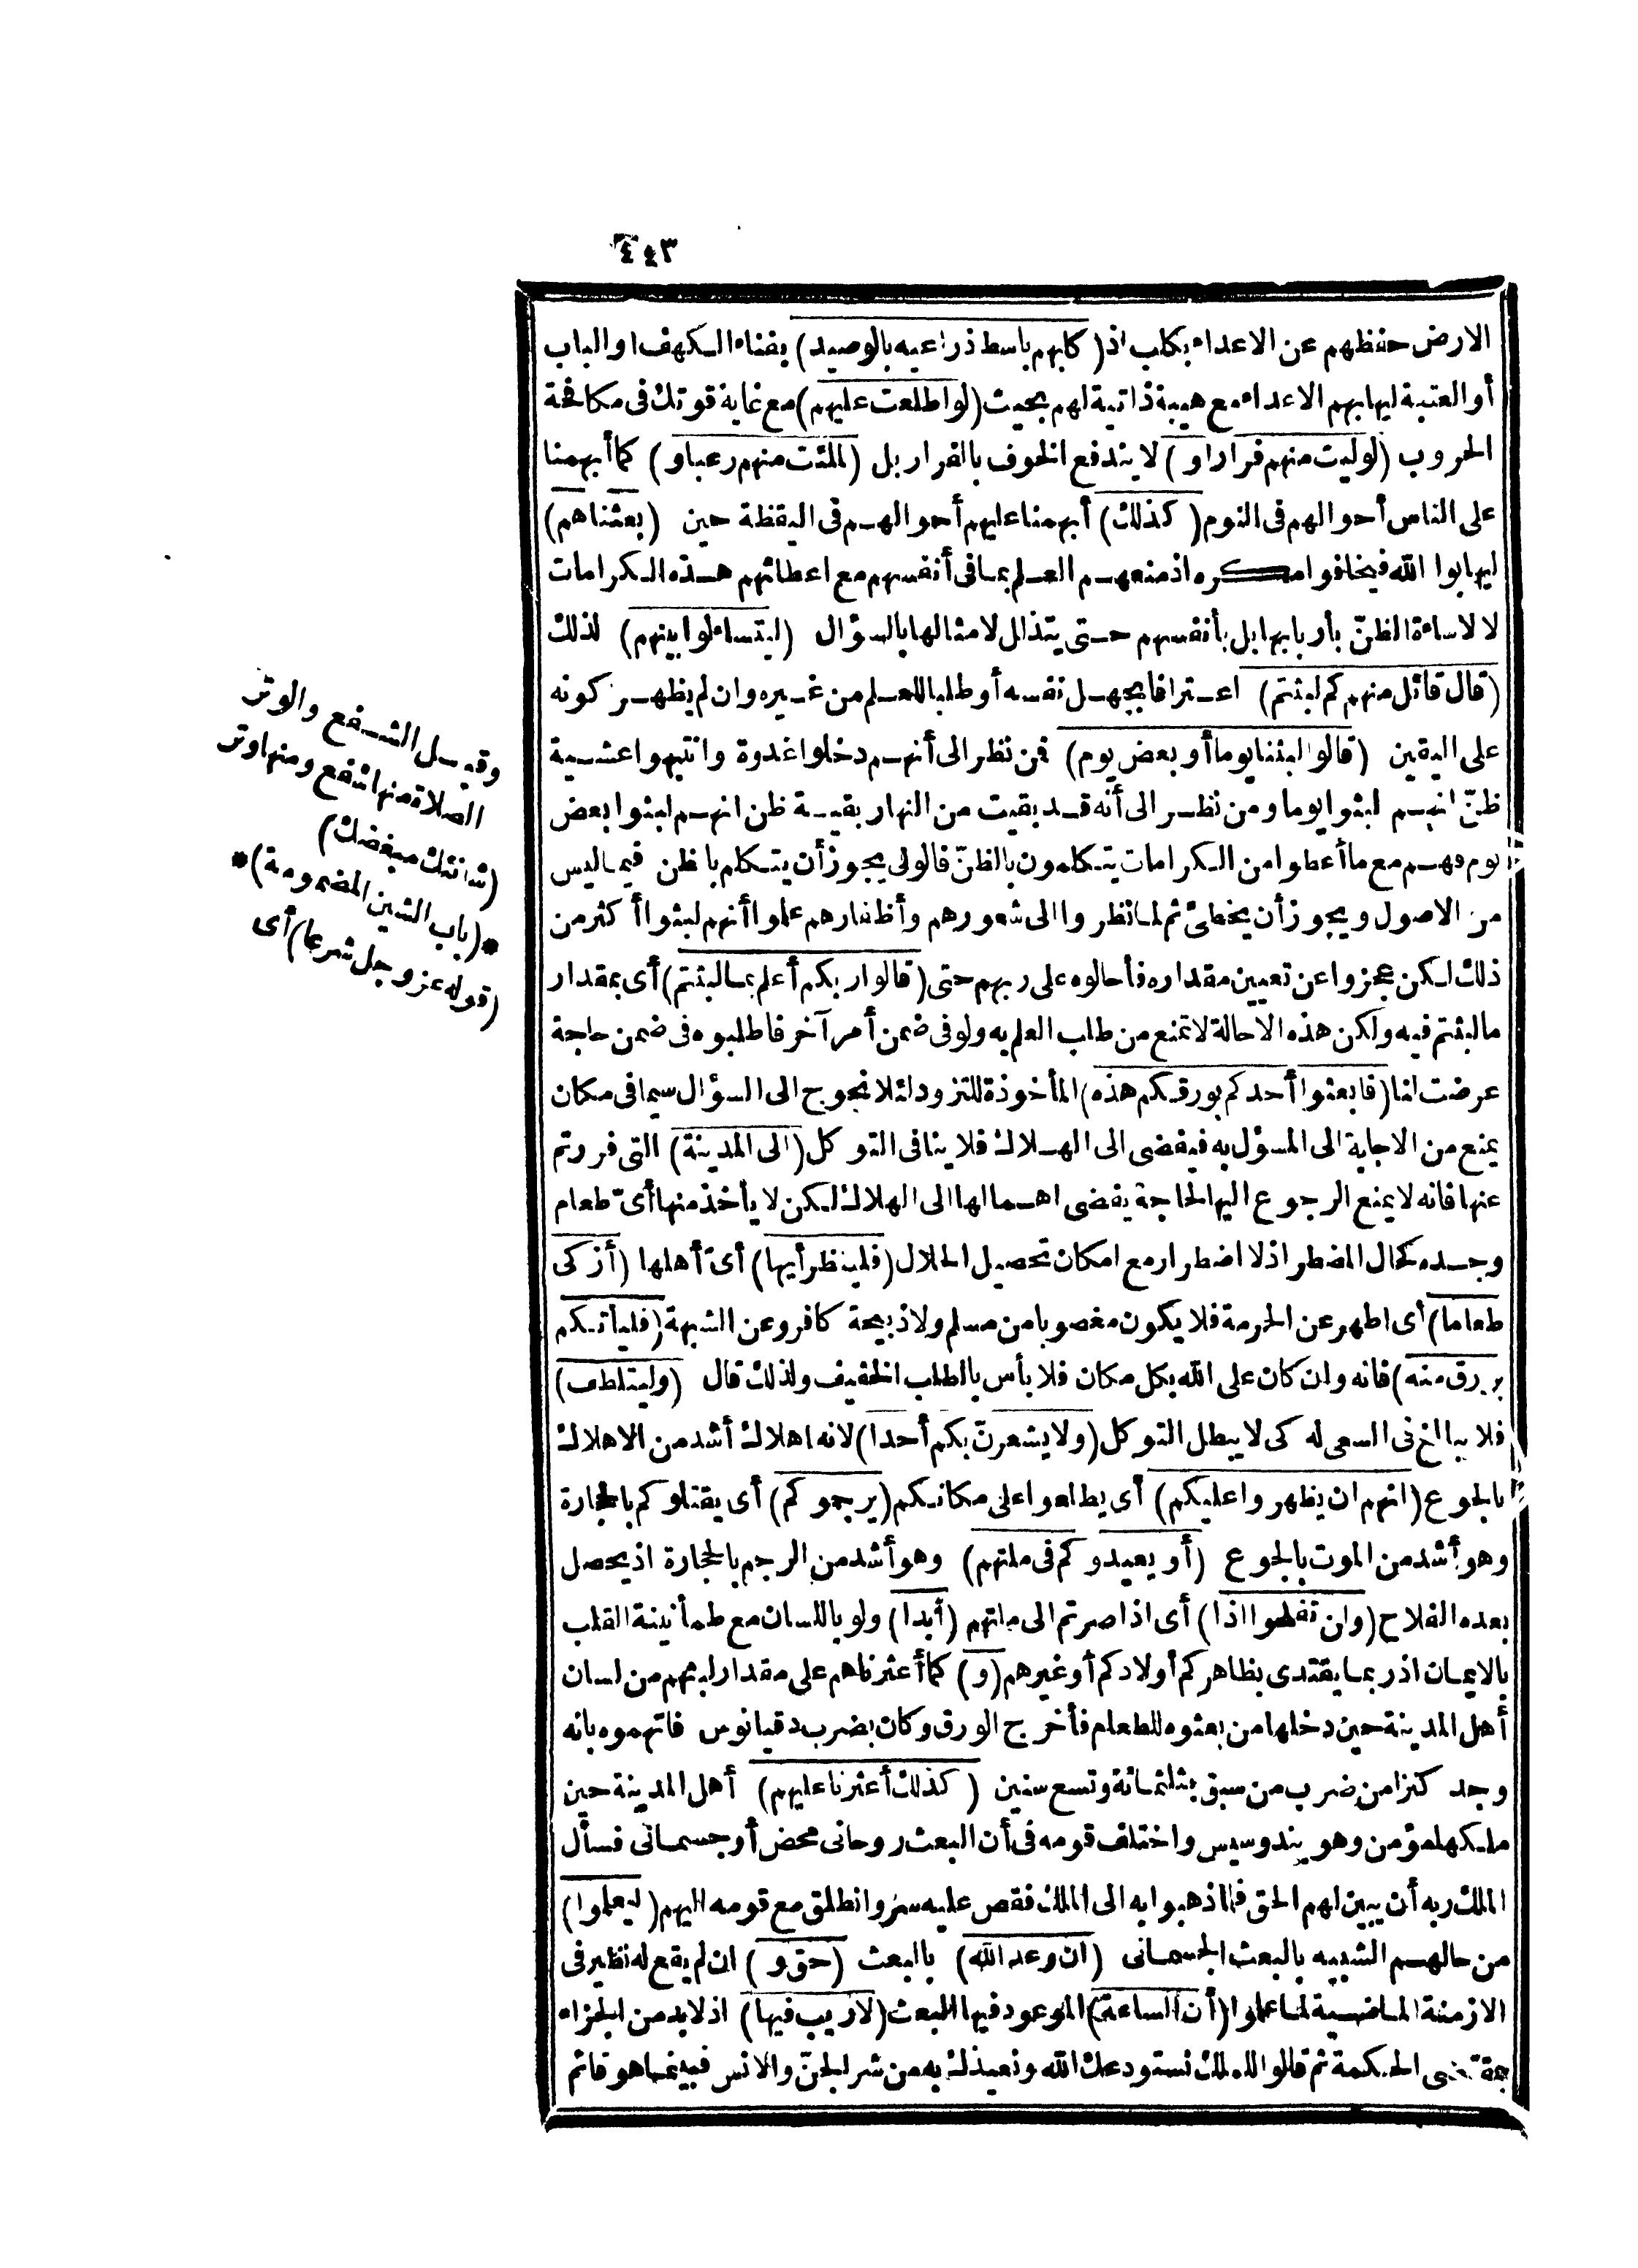 ٤٤٣
الارض حفظهم عن الاعداء بكلب اذ (كلبهم باسط ذراعيه بالوصيد) بفناء الكهف او الباب
أو العتبة ليها بهم الاعداء مع هيبة ذاتية لهم بحيث (لو اطلعت عليهم) مع غاية قوتك فى مكافحة
الحروب (لوليت منهم فرارا و) لا يندفع الخوف بالفرار بل (لملئت منهم رعبا و) كما أبهمنا
على الناس أحوالهم فى النوم (كذلك) أبهمنا عليهم أحوالهم فى اليقظة حين (بعثناهم)
ليهابوا الله فيخافوا مكره اذ منعهم العلم بما فى أنفسهم مع اعطائهم هذه الكرامات
لا لاساءة الظنّ بأربابها بل بأنفسهم حتى يتذلل لامثالها بالسؤال (ليتساءلوا بينهم) لذلك
(قال قائل منهم كم لبثتم) اعترافا بجهل نفسه أو طلبا للعلم من غيره وان لم يظهر كونه
على اليقين (قالوا لبثنا يوما أو بعض يوم) فمن نظر الى أنهم دخلوا غدوة وانتبهوا عشية
ظنّ انهم لبثوا يوما ومن نظر الى أنه قد بقيت من النهار بقية ظن انهم لبثوا بعض
يوم فهم مع ما أعطوا من الكرامات يتكلمون بالظنّ فالولى يجوز أن يتكلم با ظن فيما ليس
من الاصول ويجوز أن يخطئ ثم لما نظروا الى شعورهم وأظفارهم علموا أنهم لبثوا أكثر من
ذلك لكن عجزوا عن تعيين مقداره فأحالوه على ربهم حتى (قالوا ربكم أعلم بما لبثتم) أى بمقدار
ما لبثتم فيه ولكن هذه الاحالة لا تمنع من طلب العلم به ولو فى ضمن أمر آخر فاطلبوه فى ضمن حاجة
عرضت لنا (فابعثوا أحدكم بورقكم هذه) المأخوذة للتزود لئلا نحوج الى السؤال سيما فى مكان
يمنع من الاجابة الى المسؤل به فيفضى الى الهلاك فلا ينافى التوكل (الى المدينة) التى فررتم
عنها فانه لا يمنع الرجوع اليها لحاجة يفضى اهمالها الى الهلاك لكن لا يأخذ منها أىّ طعام
وجده كحال المضطر اذ لا اضطرار مع امكان تحصيل الحلال (فلينظر أيها) أىّ أهلها (أزكى
طعاما) أى اطهر عن الحرمة فلا يكون مغصوبا من مسلم ولا ذبيحة كافر وعن الشبهة (فليأتكم
برزق منه) فانه وان كان على الله بكل مكان فلا بأس بالطلب الخفيف ولذلك قال (وليتلطف)
فلا يبالغ فى السعى له كى لا يبطل التوكل (ولا يشعرنّ بكم أحدا) لانه اهلاك أشد من الاهلاك
بالجوع (انهم ان يظهروا عليكم) أى يطلعوا على مكانكم (يرجموكم) أى يقتلوكم بالحجارة
وهو أشد من الموت بالجوع (أو يعيدوكم فى ملتهم) وهو أشد من الرجم بالحجارة اذ يحصل
بعده الفلاح (وان تفلحوا اذا) أى اذا صرتم الى ملتهم (أبدا) ولو باللسان مع طمأنينة القلب
بالايمان اذ ربما يقتدى بظاهركم أولادكم أو غيرهم (و) كما أعثرناهم على مقدار لبثهم من لسان
أهل المدينة حين دخلها من بعثوه للطعام فأخرج الورق وكان بضرب دقيانوس فاتهموه بانه
وجد كنزا من ضرب من سبق بثلثمائة وتسع سنين (كذلك أعثرنا عليهم) أهل المدينة حين
ملكها مؤمن وهو بندوسيس واختلف قومه فى أن البعث روحانى محض أو جسمانى فسأل
الملك ربه أن يبين لهم الحق فلما ذهبوا به الى الملك فقص عليه سرّ وانطلق مع قومه اليهم (ليعلموا)
من حالهم الشبيه بالبعث الجسمانى (ان وعد الله) بالبعث (حق و) ان لم يقع له نظير فى
الازمنة الماضية لما علموا (أن الساعة) الموعود فيها البعث (لا ريب فيها) اذ لا بد من الجزاء
بمقتضى الحكمة ثم قالوا للملك نستودعك الله ونعيذك به من شر الجنّ والانس فبينما هو قائم
وقيل الشفع والوتر
الصلاة منها شفع ومنها وتر
(شانئك مبغضك)
*(باب الشين المضمومة)*
(قوله عز وجل شرعا) أى